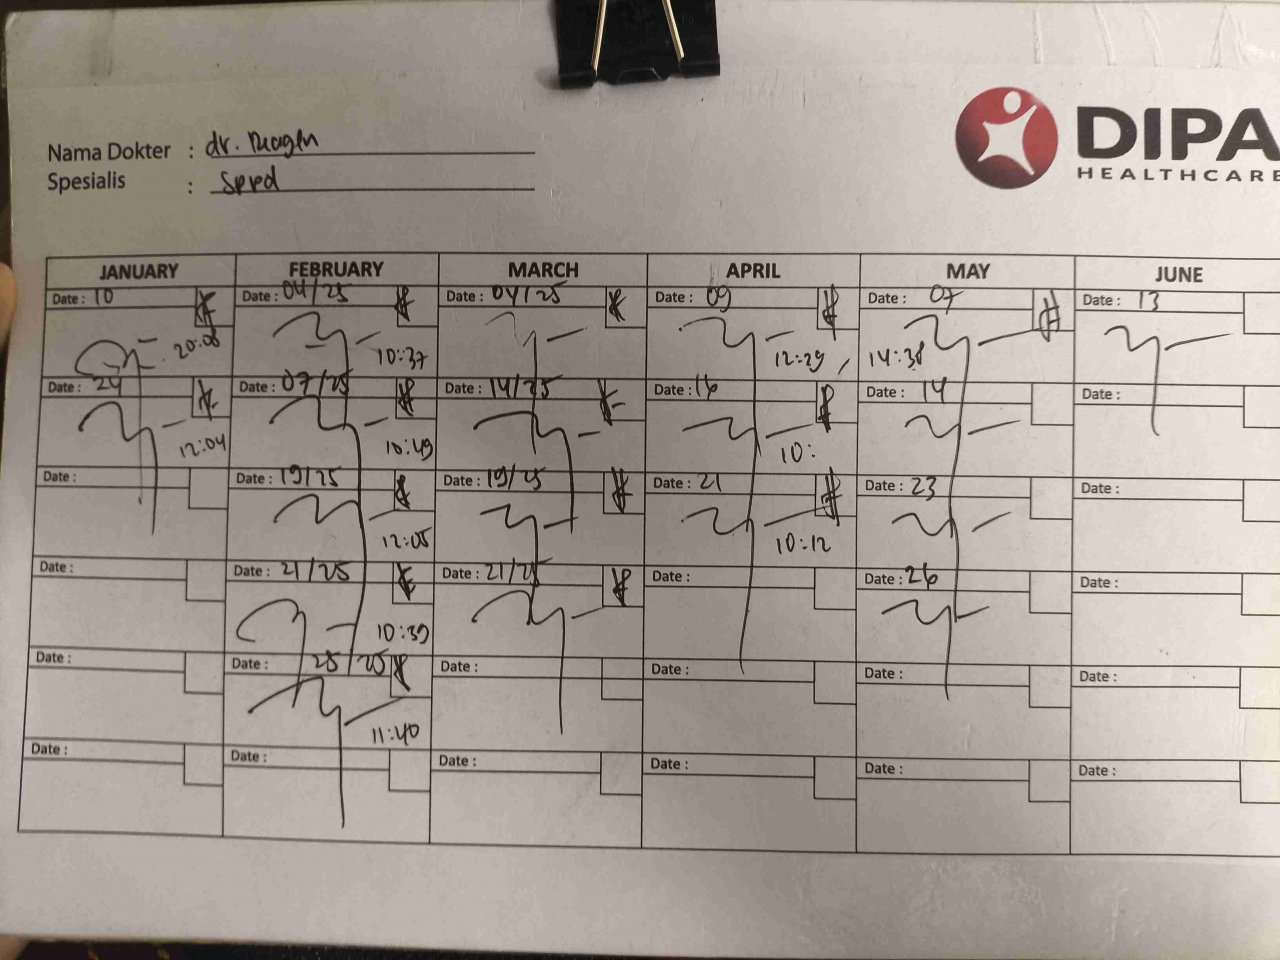 DIPA
HEALTHCARE
Nama Dokter : dr.
Spesialis : Sppd
JANUARY FEBRUARY MARCH APRIL MAY JUNE
Date : 10 Date : 04/25 Date : 04/25 Date : 09 Date : 07 Date : 13
20:08 10:37 12:29 14:38
Date : 24 Date : 07/25 Date : 14/25 Date : 16 Date : 14 Date :
12:04 10:49 10:
Date : Date : 19/25 Date : 19/25 Date : 21 Date : 23 Date :
12:05 10:12
Date : Date : 21/25 Date : 21/25 Date : Date : 26 Date :
10:39
Date : Date : 25/25 Date : Date : Date : Date :
11:40
Date : Date : Date : Date : Date : Date :